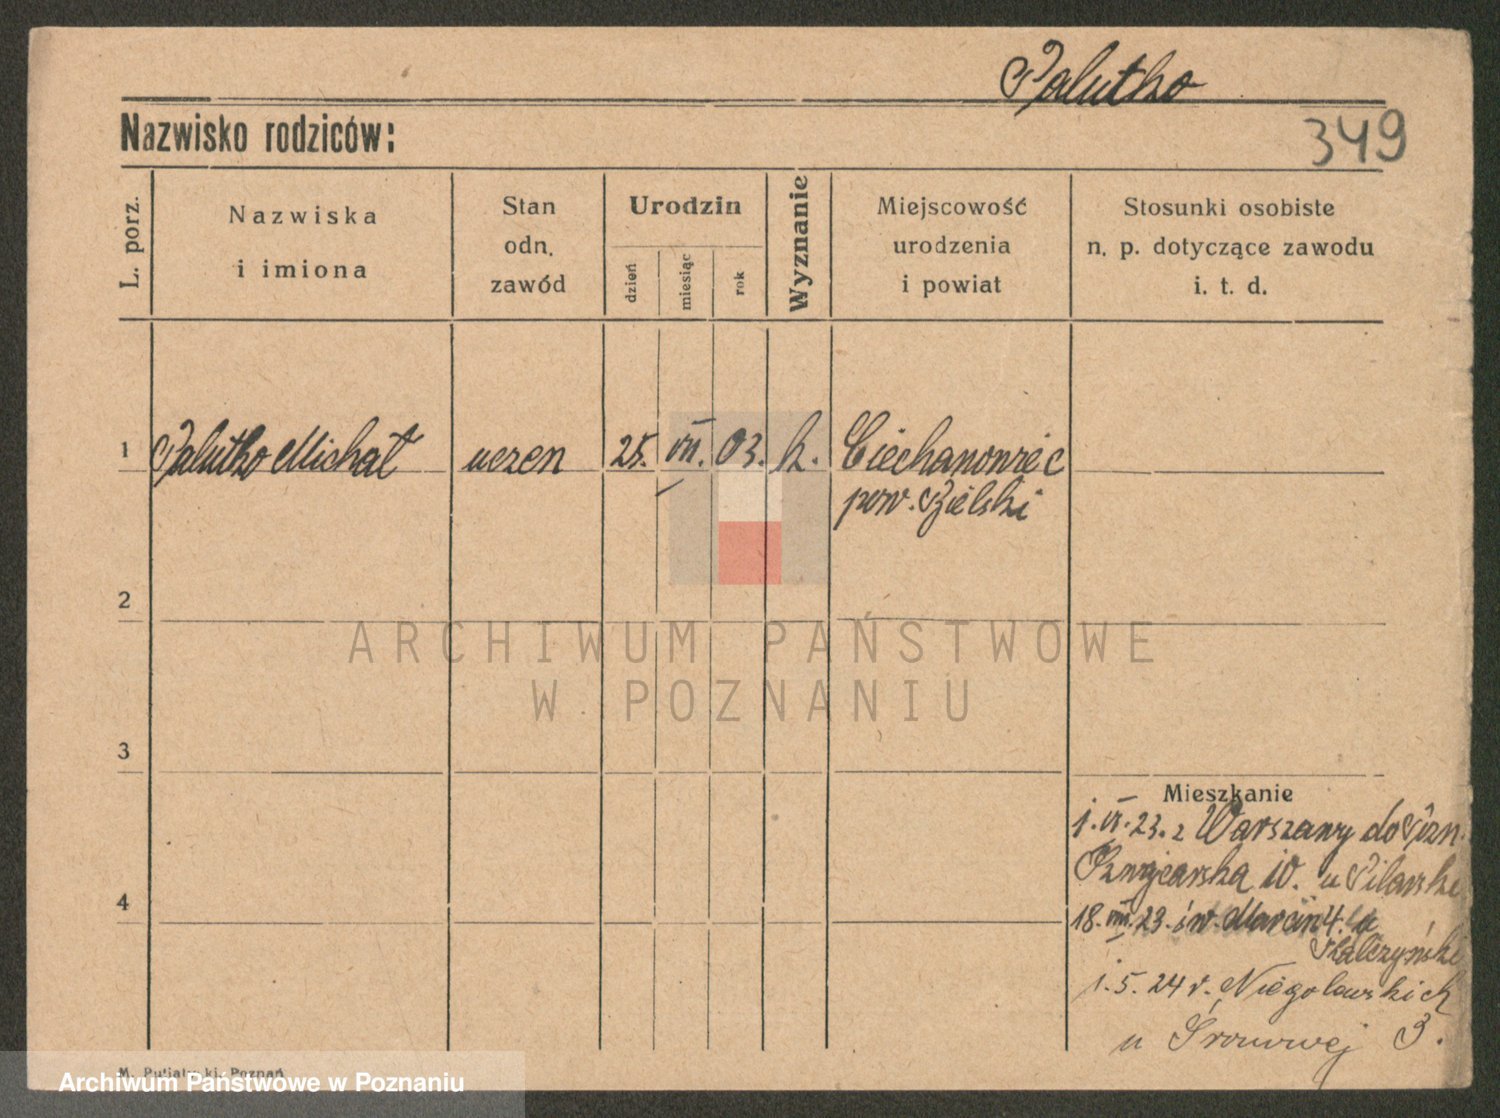 Palutko
Nazwisko rodziców:
349
L. porz.
Nazwiska
i imiona
Stan
odn.
zawód
Urodzin
dzień
miesiąc
rok
Wyznanie
Miejscowość
urodzenia
i powiat
Stosunki osobiste
n. p. dotyczące zawodu
i. t. d.
1 Palutko Michał uczen 25. VII. 03. k. Ciechanowiec
pow. Bielski
2
ARCHIWUM PAŃSTWOWE
W POZNANIU
3
Mieszkanie
1. VI. 23. z Warszawy do Pozn.
10. u Pilarski
4
18. VIII. 23. św. Marcin 4. u
1. 5. 24 r. Niegolewskich
u 3.
Poznań
Archiwum Państwowe w Poznaniu